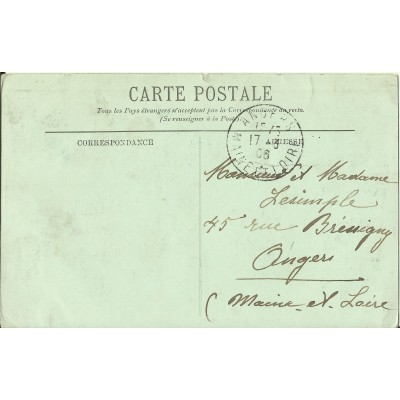 CARTE POSTALE
Tous les Pays étrangers n'acceptent pas la Correspondance au verso.
(Se renseigner à la Poste)
CORRESPONDANCE
ADRESSE
ANGERS
15-15
17
06
MAINE-ET-LOIRE
Monsieur et Madame
Lesimple
45 rue Bressigny
Angers
(Maine-et-Loire